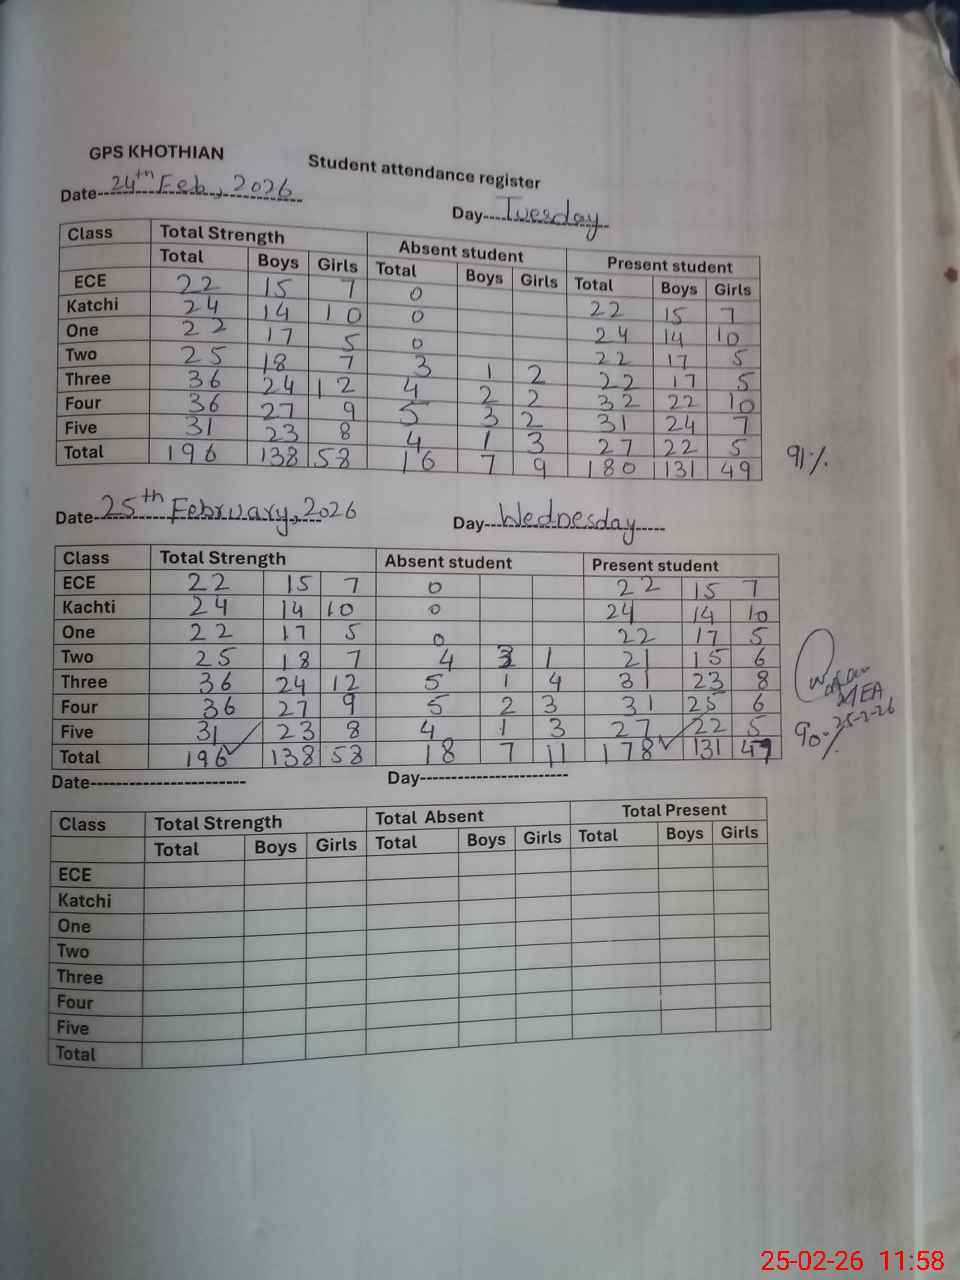 GPS KHOTHIAN
Student attendance register
Date 24th Feb, 2026
Day Tuesday
Class Total Strength Absent student Present student
Total Boys Girls Total Boys Girls Total Boys Girls
ECE 22 15 7 0 22 15 7
Katchi 24 14 10 0 24 14 10
One 22 17 5 0 22 17 5
Two 25 18 7 3 1 2 22 17 5
Three 36 24 12 4 2 2 32 22 10
Four 36 27 9 5 3 2 31 24 7
Five 31 23 8 4 1 3 27 22 5
Total 196 138 58 16 7 9 180 131 49
91%
Date 25th February, 2026
Day Wednesday
Class Total Strength Absent student Present student
ECE 22 15 7 0 22 15 7
Kachti 24 14 10 0 24 14 10
One 22 17 5 0 22 17 5
Two 25 18 7 4 3 1 21 15 6
Three 36 24 12 5 1 4 31 23 8
Four 36 27 9 5 2 3 31 25 6
Five 31 23 8 4 1 3 27 22 5
Total 196 138 58 18 7 11 178 131 47
MEA
25-2-26
90%
Date
Day
Class Total Strength Total Absent Total Present
Total Boys Girls Total Boys Girls Total Boys Girls
ECE
Katchi
One
Two
Three
Four
Five
Total
25-02-26 11:58